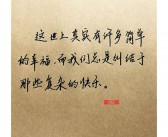 这世上真实有许多简单
的幸福，而我们总是纠结于
那些复杂的快乐。